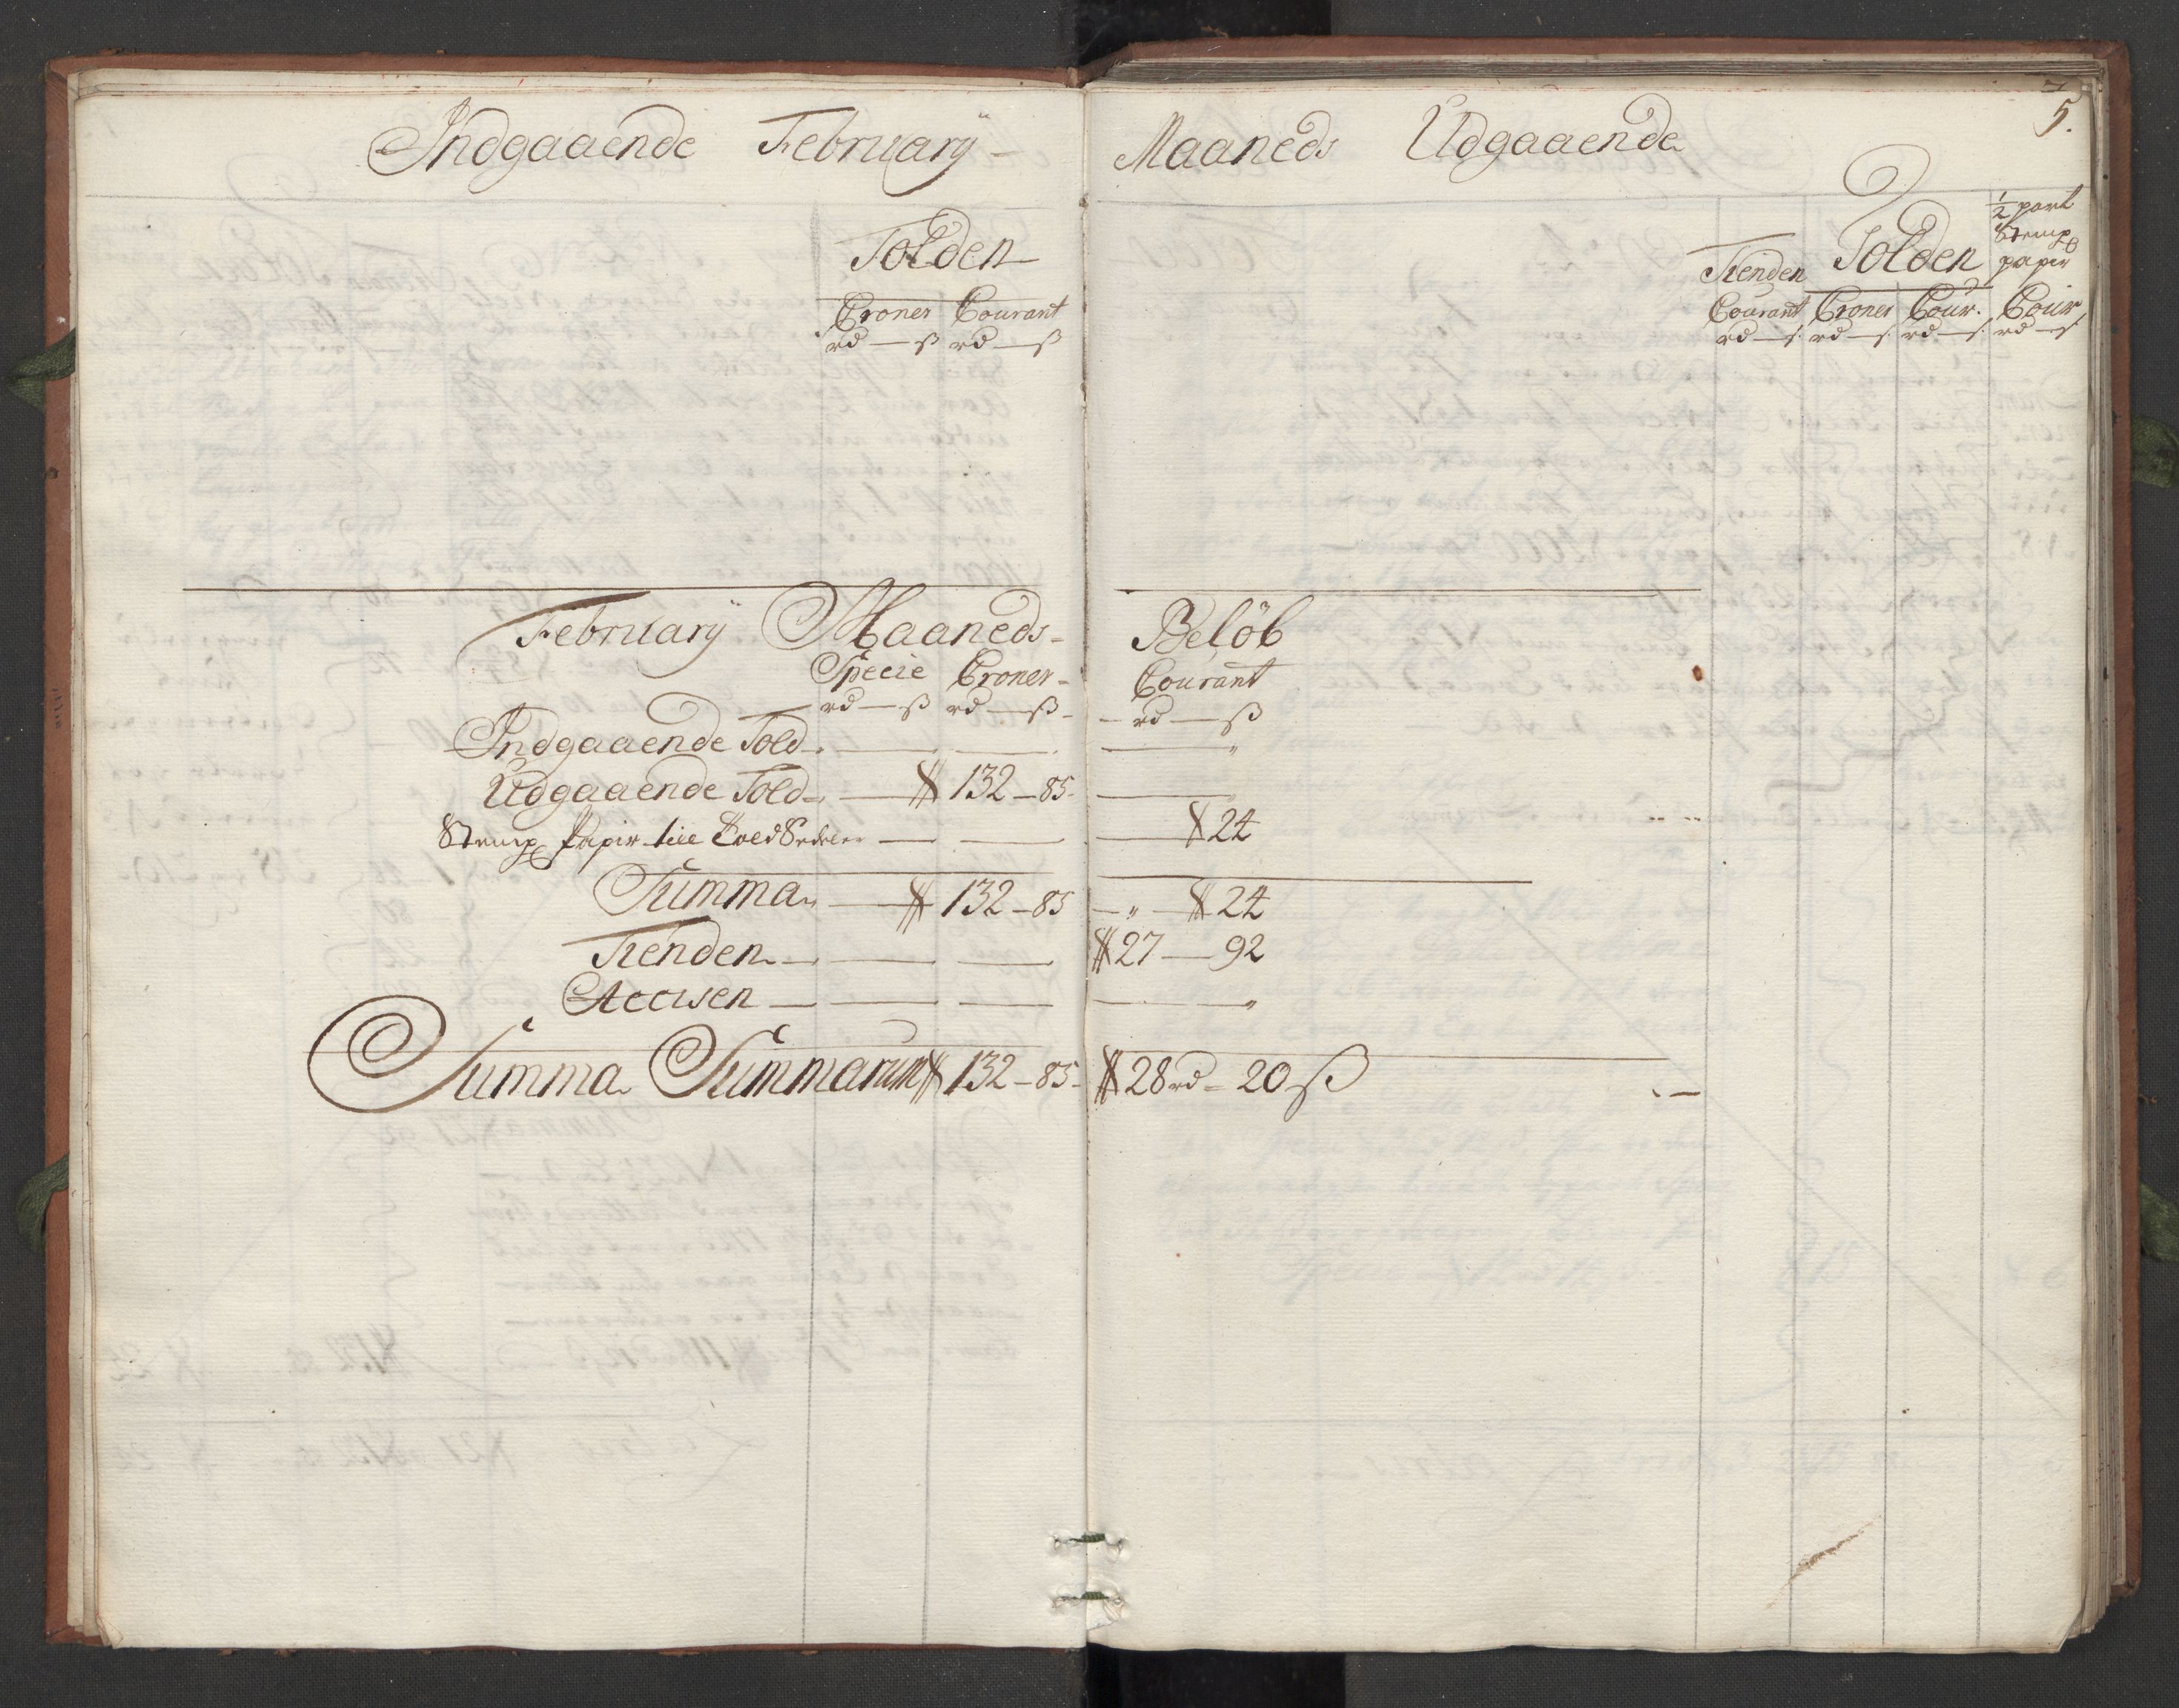 Indgaaende Februarij
Maaneds Udgaaende
5.
Tolden
Croner Courant
rd — ß rd — ß
Tienden Tolden ½ part Stemp papir
Courant Croner Cour. Cour
rd — ß rd — ß rd — ß rd — ß
Februarij Maaneds Beløb
Specie Croner Courant
rd — ß rd — ß rd — ß
Indgaaende Told
Udgaaende Told — 132 – 85
Stemp Papir till Told Sedeler — 24
Summa — 132 – 85 — " — 24
Tienden — 27 — 92
Accisen
Summa Summarum 132 – 85 28 rd – 20 ß